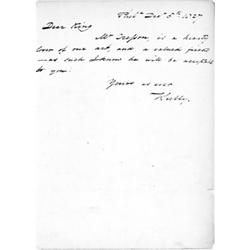 Phila Dec 5th 1827
Dear King
Mr Tresson, is a hearty
lover of our art, and a valued friend
as such I know he will be acceptable
to you.
Yours as ever
Sully.